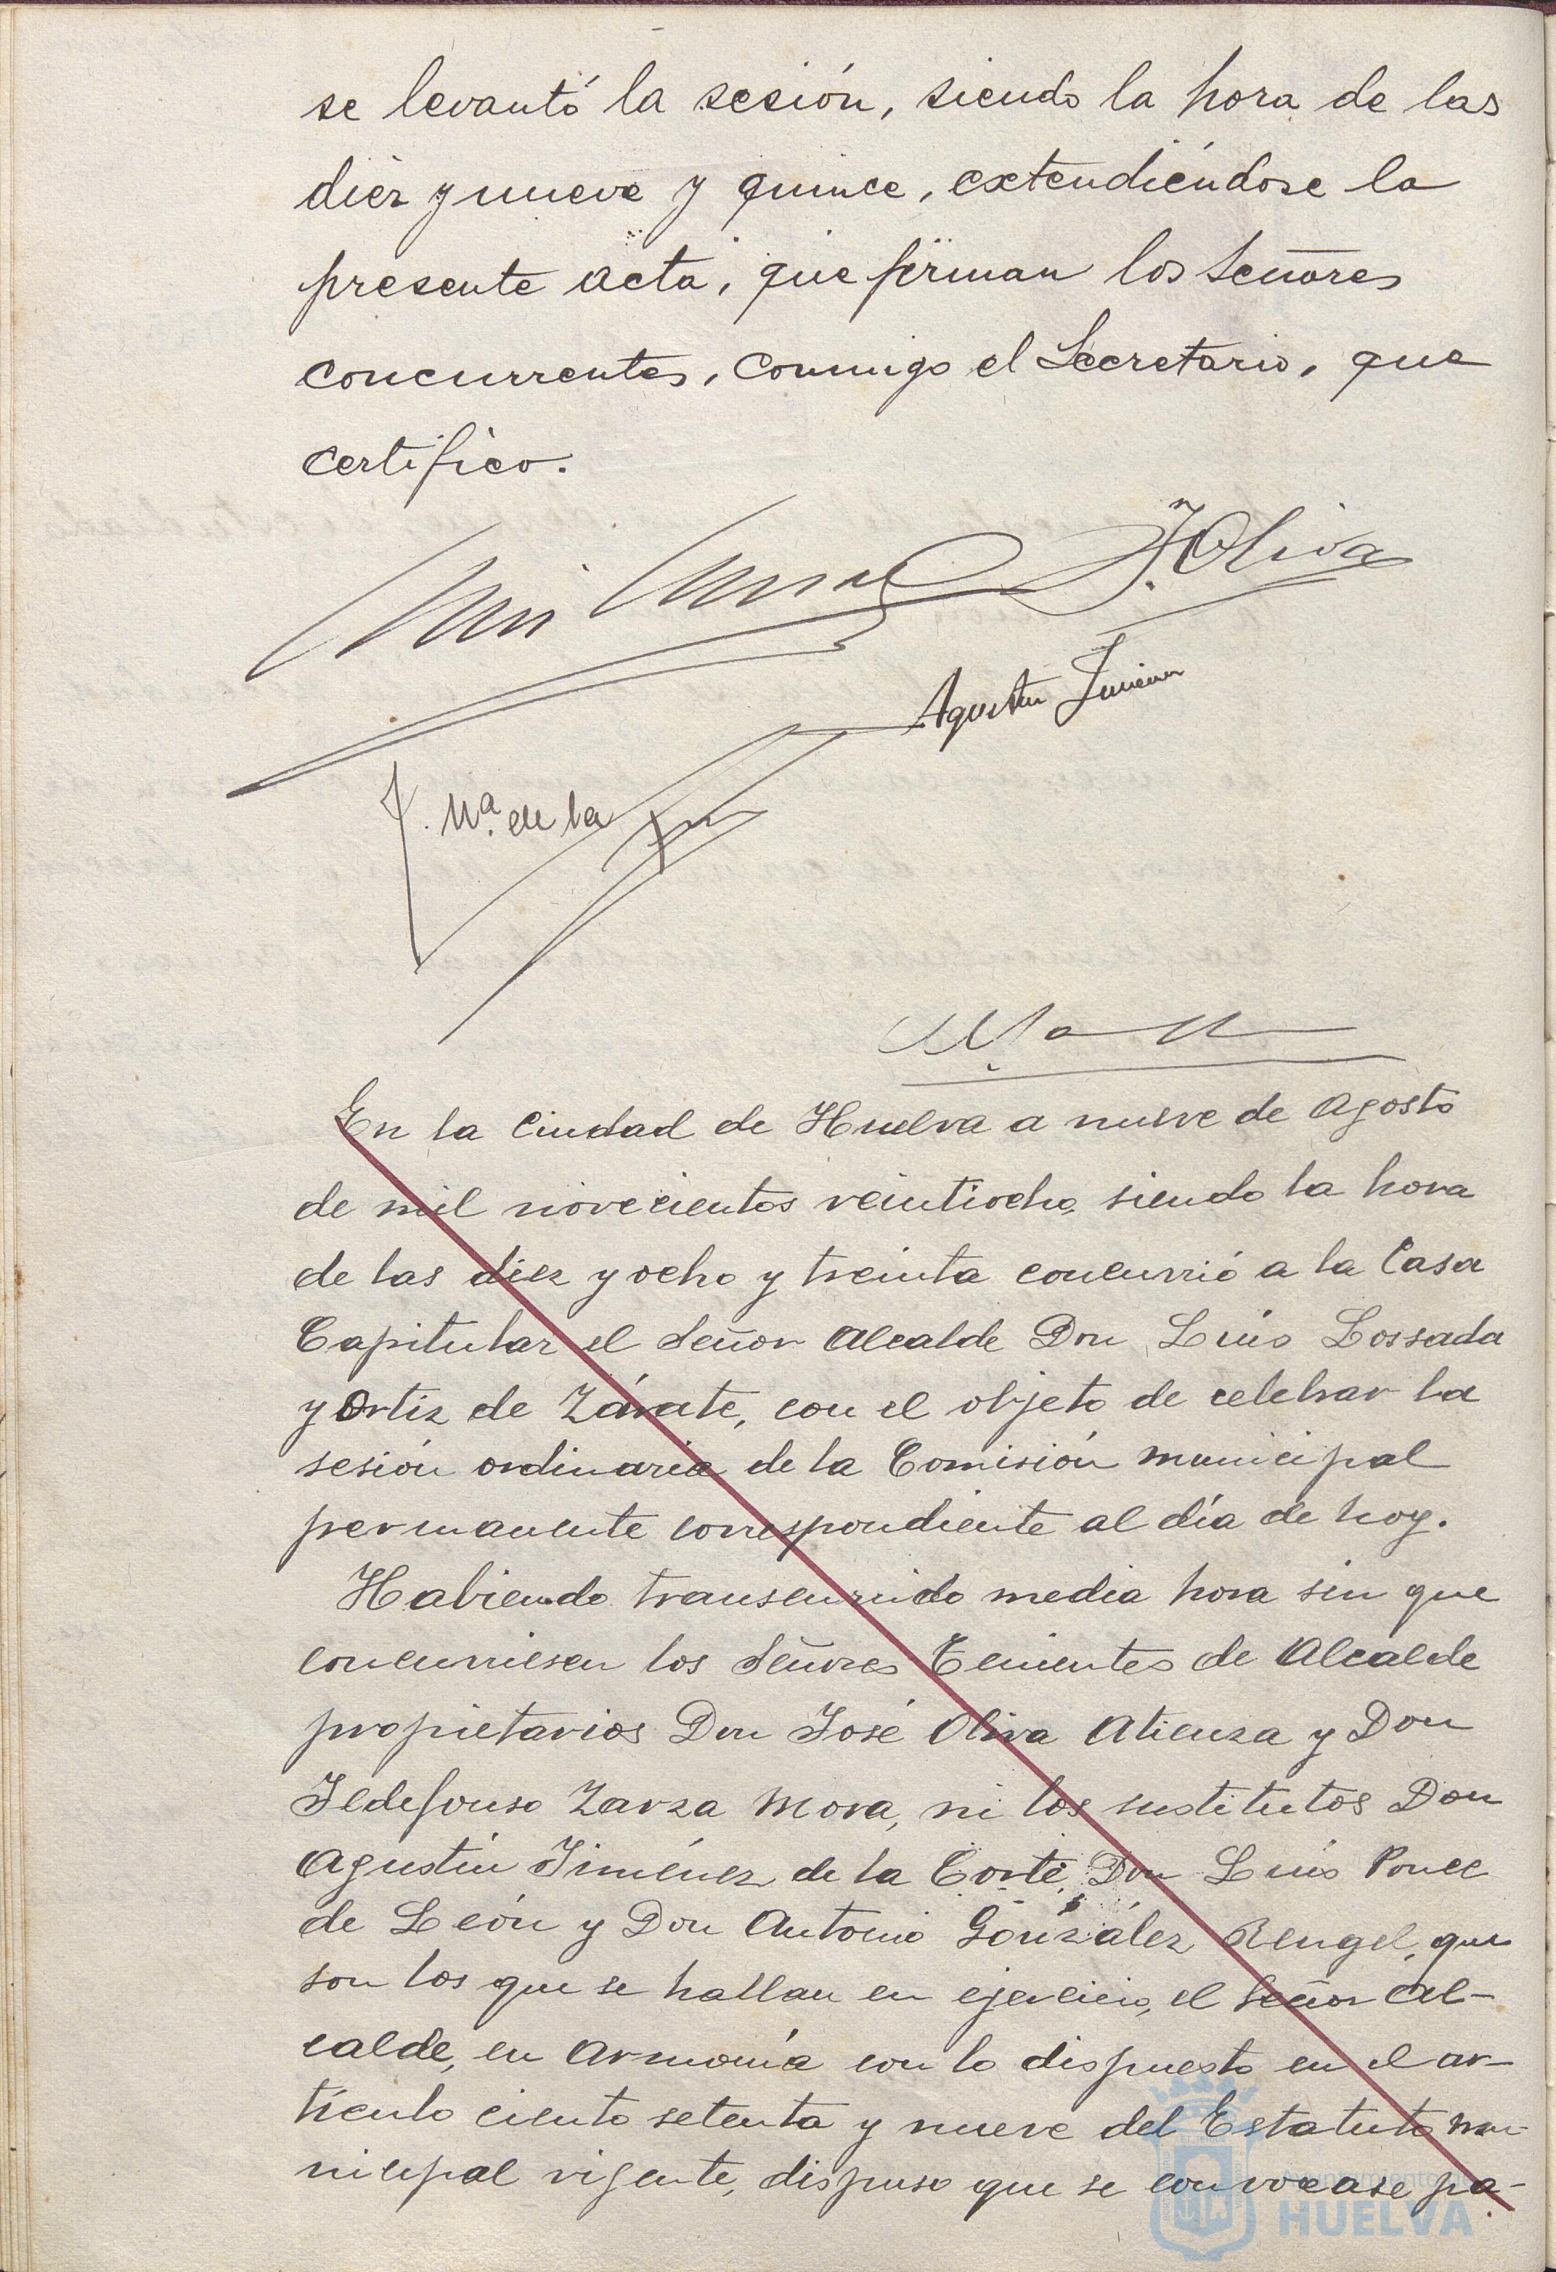 se levantó la sesión, siendo la hora de las
diez y nueve y quince, extendiéndose la
presente acta, que firman los Señores
concurrentes, conmigo el Secretario, que
certifico.
J. Oliva
Agustín Jimenez
J. Mª. de la
En la Ciudad de Huelva a nueve de Agosto
de mil novecientos veintiocho, siendo la hora
de las diez y ocho y treinta concurrió a la Casa
Capitular el Señor Alcalde Don Luis Lossada
y Ortiz de Zárate, con el objeto de celebrar la
sesión ordinaria de la Comisión municipal
permanente correspondiente al día de hoy.
Habiendo transcurrido media hora sin que
concurriesen los Señores Tenientes de Alcalde
propietarios Don José Oliva Atienza y Don
Ildefonso Zarza Mora, ni los sustitutos Don
Agustín Jiménez de la Corte, Don Luis Ponce
de León y Don Antonio González Rengel, que
son los que se hallan en ejercicio, el Señor Al-
calde, en armonía con lo dispuesto en el ar-
tículo ciento setenta y nueve del Estatuto mu-
nicipal vigente, dispuso que se convocase pa-
Ayuntamiento de
HUELVA